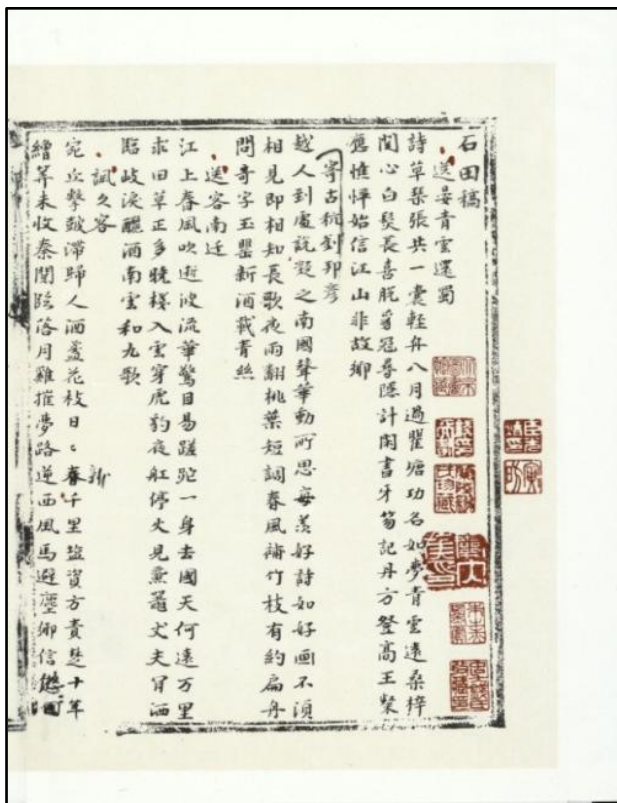 石田稿
送晏青雲還蜀
詩草琹張共一囊輕舟八月過瞿塘功名如夢青雲遠桑梓
関心白髮長喜脫
冠尋隱計閑書牙笏記丹方登高王粲
應憔悴始信江山非故鄉
寄古杭劉邦彥
越人到處說
之南國聲華動所思每羨好詩如好画不須
相見即相知長歌夜雨翻桃葉短調春風
竹枝有約扁舟
問奇字玉罌新酒載青絲
送客南迁
江上春風吹逝波流華驚目易蹉跎一身去國天何遠万里
求田草正多曉棧入雲穿虎豹夜舡停火見魚鼉丈夫肎洒
臨岐淚釃酒南雲和九歌
諷久客
宛丘擊鼓滯歸人酒盞花枝日〻新
春千里塩資方賣楚十年
繒筭未收秦関隂落月雞摧夢路逆西風馬避塵鄉信